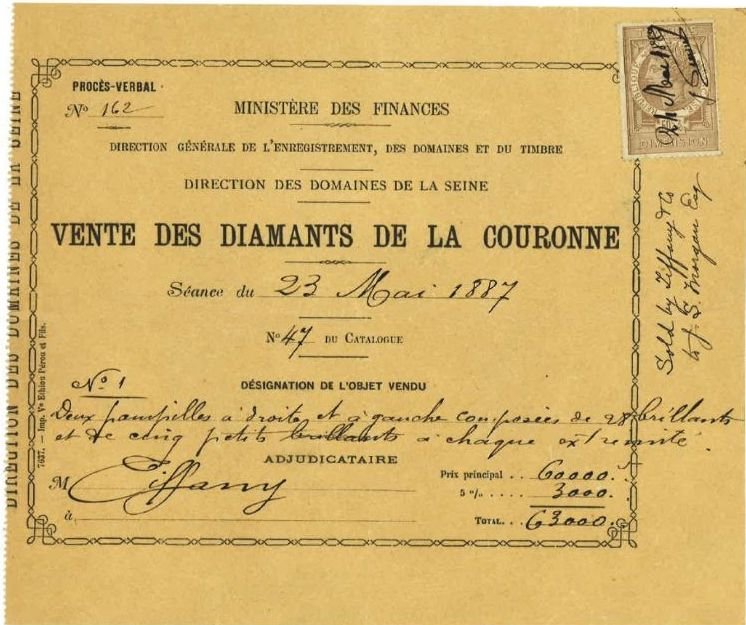 PROCÈS-VERBAL
No 162
MINISTÈRE DES FINANCES
DIRECTION GÉNÉRALE DE L'ENREGISTREMENT, DES DOMAINES ET DU TIMBRE
DIRECTION DES DOMAINES DE LA SEINE
VENTE DES DIAMANTS DE LA COURONNE
Séance du 23 Mai 1887
No 47 DU CATALOGUE
No 1
DÉSIGNATION DE L'OBJET VENDU
Deux pampilles à droite et à gauche composées de 28 brillants
et de cinq petits brillants à chaque extremité.
ADJUDICATAIRE
M Tiffany
à
Prix principal .. 60000.
5 % .. 3000.
TOTAL .. 63000.
DIRECTION DES DOMAINES DE LA SEINE
7637. — Imp. Ve Éthiou Pérou et Fils.
24 Mai 1887
DIMENSION
Sold by Tiffany & Co
to J. S. Morgan Esq